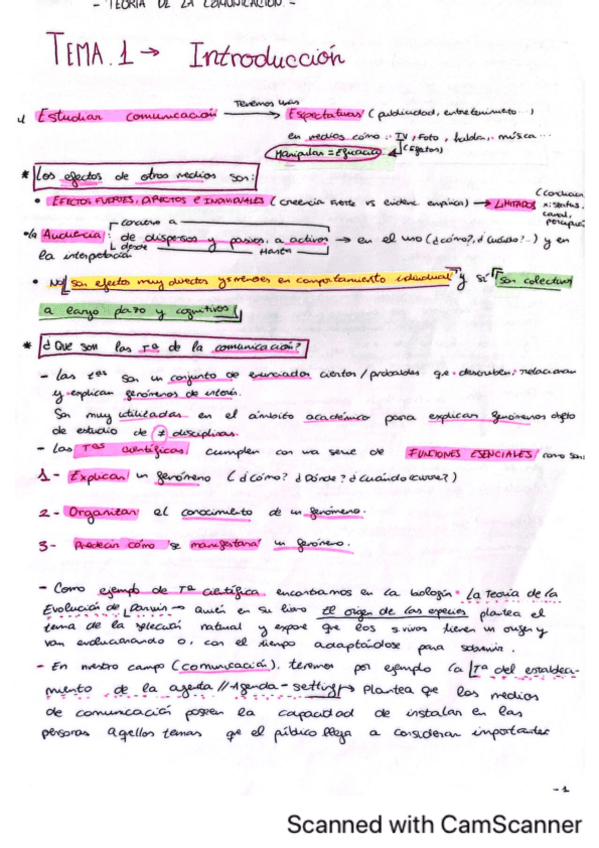 - TEORÍA DE LA COMUNICACIÓN. -
TEMA. 1 → Introducción
Estudiar comunicación Tenemos unas → Expectativas (publicidad, entretenimiento ...)
en medios como: TV, Foto, habla, música ...
Manipular = Eficacia (Efectos)
* Los efectos de otros medios son:
• EFECTOS FUERTES, DIRECTOS E INDIVIDUALES (creencia fuerte vs evidencia empírica) → LIMITADOS
• la Audiencia: concreto a
de dispersos y pasivos, a activos → en el uso (¿cómo?, ¿cuándo?..) y en
desde Hasta
la interpretación
• No son efectos muy directos y menores en comportamiento individual y sí son colectivos
a largo plazo y cognitivos
* ¿Qué son las Tª de la comunicación?
- Las tªs son un conjunto de enunciados ciertos / probables que describen, relacionan
y explican fenómenos de interés.
Son muy utilizadas en el ámbito académico para explicar fenómenos objeto
de estudio de ≠ disciplinas.
- Las Tªs científicas cumplen con una serie de FUNCIONES ESENCIALES como son:
1 - Explicar un fenómeno (¿Cómo? ¿Dónde? ¿Cuándo ocurre?)
2 - Organizar el conocimiento de un fenómeno.
3 - Predecir cómo se manifestará un fenómeno.
- Como ejemplo de Tª científica encontramos en la biología: La Teoría de la
Evolución de Darwin → quién en su libro El origen de las especies plantea el
tema de la selección natural y expone que los s.vivos tienen un origen y
van evolucionando o, con el tiempo adaptándose para sobrevivir.
- En nuestro campo (comunicación), tenemos por ejemplo la Tª del estableci-
miento de la agenda // Agenda-setting → Plantea que los medios
de comunicación poseen la capacidad de instalar en las
personas aquellos temas qe el público llega a considerar importantes
- 1
Scanned with CamScanner